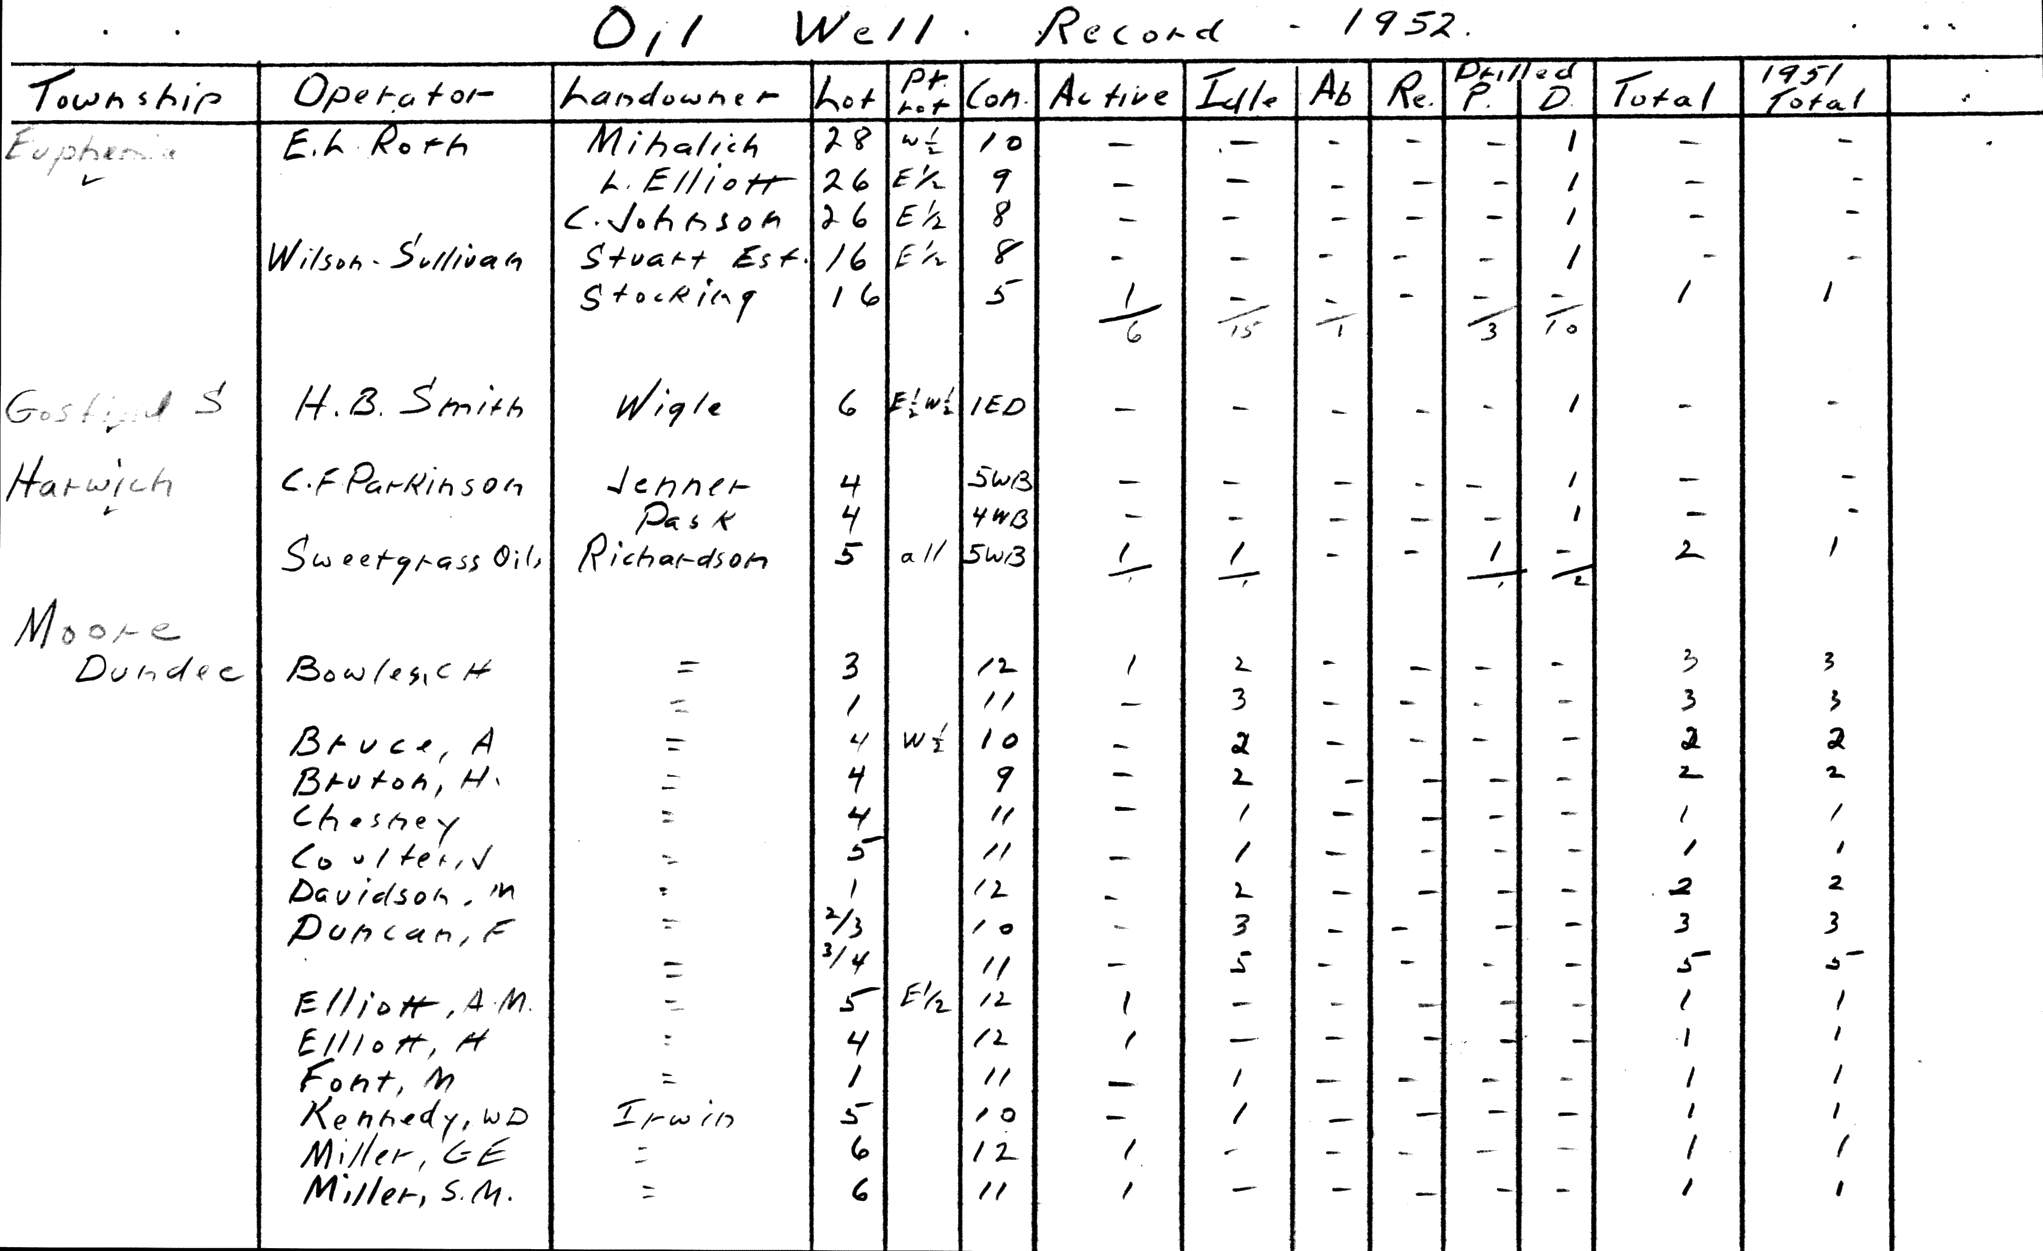 Oil Well. Record - 1952.
Township Operator Landowner Lot Pt. Lot Con. Active Idle Ab Re. Drilled P. D. Total 1951 Total
Euphemia E.L. Roth Mihalich 28 W½ 10 - - - - - 1 - -
L. Elliott 26 E½ 9 - - - - - 1 - -
C. Johnson 26 E½ 8 - - - - - 1 - -
Wilson-Sullivan Stuart Est. 16 E½ 8 - - - - - 1 - -
Stocking 16 5 1 - - - - - 1 1
6 15 1 3 10
Gosfield S H.B. Smith Wigle 6 E½W½ 1ED - - - - - 1 - -
Harwich C.F Parkinson Jenner 4 5WB - - - - - 1 - -
Pask 4 4WB - - - - - 1 - -
Sweetgrass Oils Richardson 5 all 5WB 1 1 - - 1 - 2 1
1 1 1 2
Moore
Dundee Bowles, CH = 3 12 1 2 - - - - 3 3
= 1 11 - 3 - - - - 3 3
Bruce, A = 4 W½ 10 - 2 - - - - 2 2
Bruton, H. = 4 9 - 2 - - - - 2 2
Chesney = 4 11 - 1 - - - - 1 1
Coulter, J = 5 11 - 1 - - - - 1 1
Davidson, M = 1 12 - 2 - - - - 2 2
Duncan, F = 2/3 10 - 3 - - - - 3 3
= 3/4 11 - 5 - - - - 5 5
Elliott, A.M. = 5 E½ 12 1 - - - - - 1 1
Elliott, H = 4 12 1 - - - - - 1 1
Font, M = 1 11 - 1 - - - - 1 1
Kennedy, WD Irwin 5 10 - 1 - - - - 1 1
Miller, GE = 6 12 1 - - - - - 1 1
Miller, S.M. = 6 11 1 - - - - - 1 1